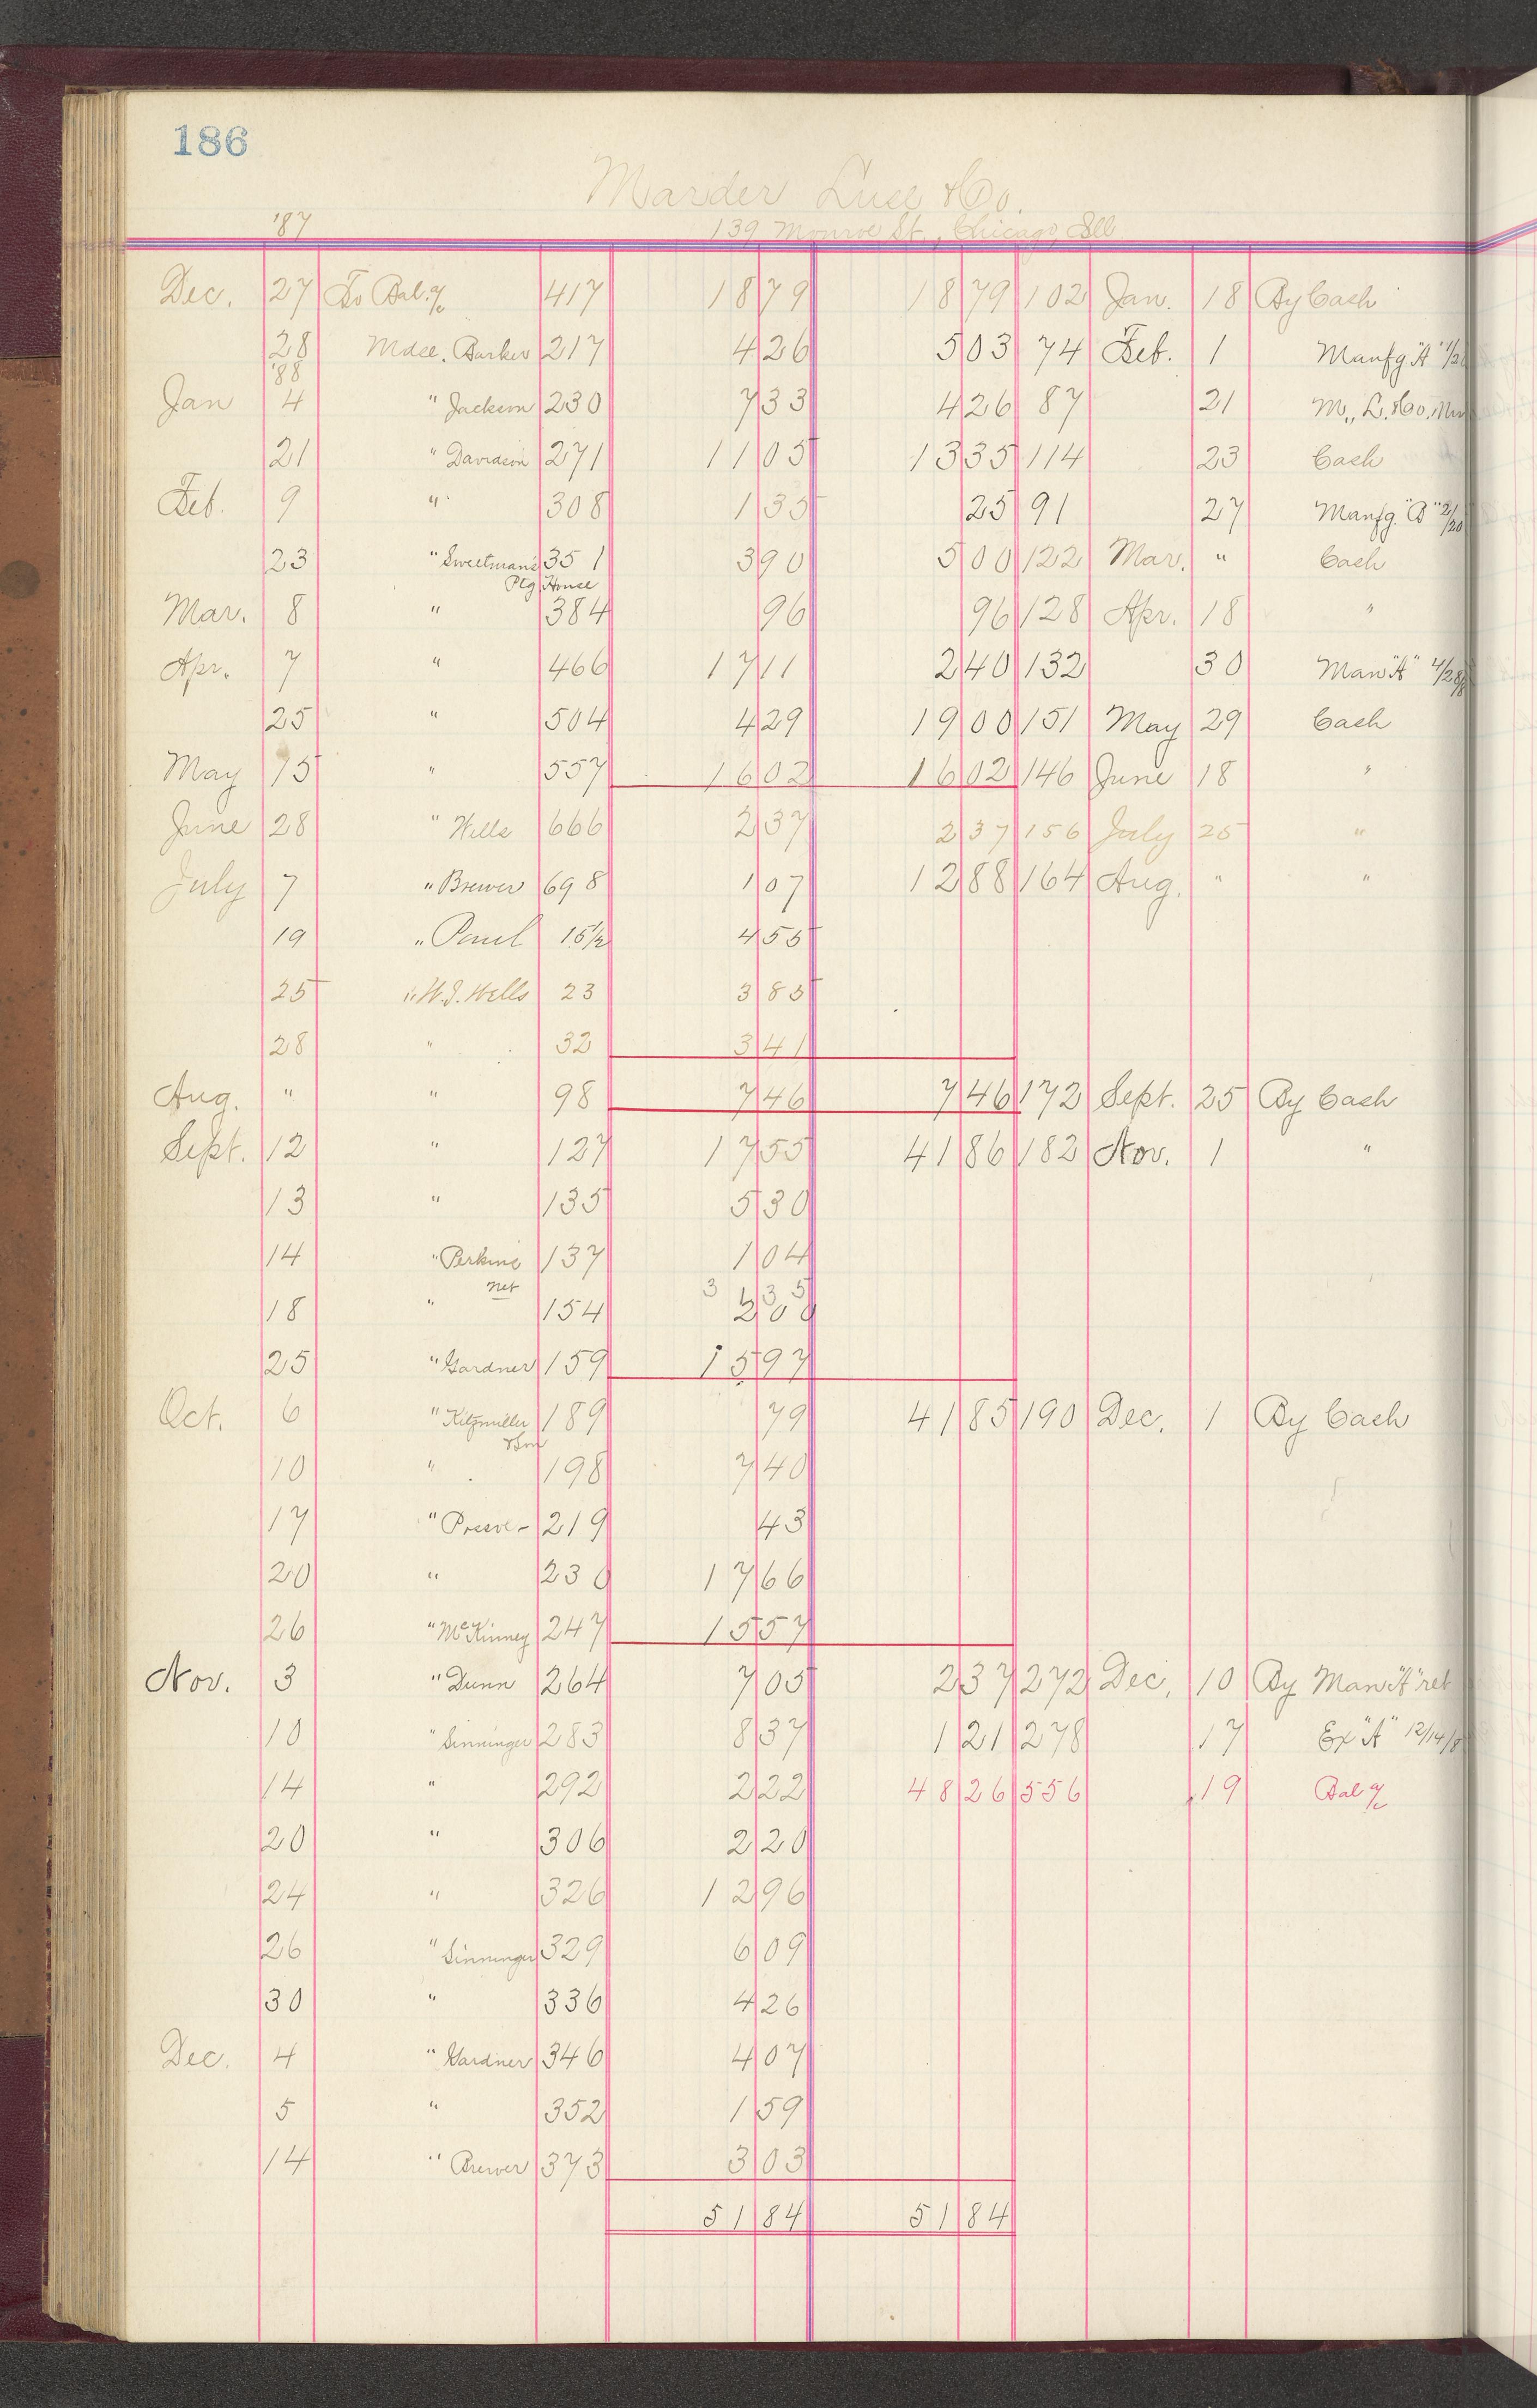 186
Marder Luse & Co.
'87 139 Monroe St., Chicago, Ill.
Dec. 27 To Bal. a/c 417 18 79 18 79 102 Jan. 18 By Cash
28 Mdse. Barker 217 4 26 5 03 74 Feb. 1 Manfg "A"
'88
Jan 4 " Jackson 230 7 33 4 26 87 21 M., L. & Co.
21 " Davidson 271 11 05 13 35 114 23 Cash
Feb. 9 " 308 1 35 25 91 27 Manfg. "B" 2/20
23 " Sweetman's 351 3 90 5 00 122 Mar. " Cash
Ptg House
Mar. 8 " 384 96 96 128 Apr. 18 "
Apr. 7 " 466 17 11 2 40 132 30 Man "A" 4/28
25 " 504 4 29 19 00 151 May 29 Cash
May 15 " 557 16 02 16 02 146 June 18 "
June 28 " Wells 666 2 37 2 37 156 July 25 "
July 7 " Brewer 698 1 07 12 88 164 Aug. " "
19 " Paul 15 1/2 4 55
25 " W. J. Wells 23 3 85
28 " 32 3 41
Aug. " " 98 7 46 7 46 172 Sept. 25 By Cash
Sept. 12 " 127 17 55 41 86 182 Nov. 1 "
13 " 135 5 30
14 " Perkins 137 1 04
net
18 " 154
25 " Gardner 159 15 97
Oct. 6 " Kitzmiller 189 79 41 85 190 Dec. 1 By Cash
& Son
10 " 198 7 40
17 " 219 43
20 " 230 17 66
26 " McKinney 247 15 57
Nov. 3 " Dunn 264 7 05 2 37 272 Dec. 10 By Man "A" ret
10 " Sinninger 283 8 37 1 21 278 17 Ex "A" 12/14/8
14 " 292 2 22 48 26 556 19 Bal a/c
20 " 306 2 20
24 " 326 12 96
26 " Sinninger 329 6 09
30 " 336 4 26
Dec. 4 " Gardner 346 4 07
5 " 352 1 59
14 " Brewer 373 3 03
51 84 51 84